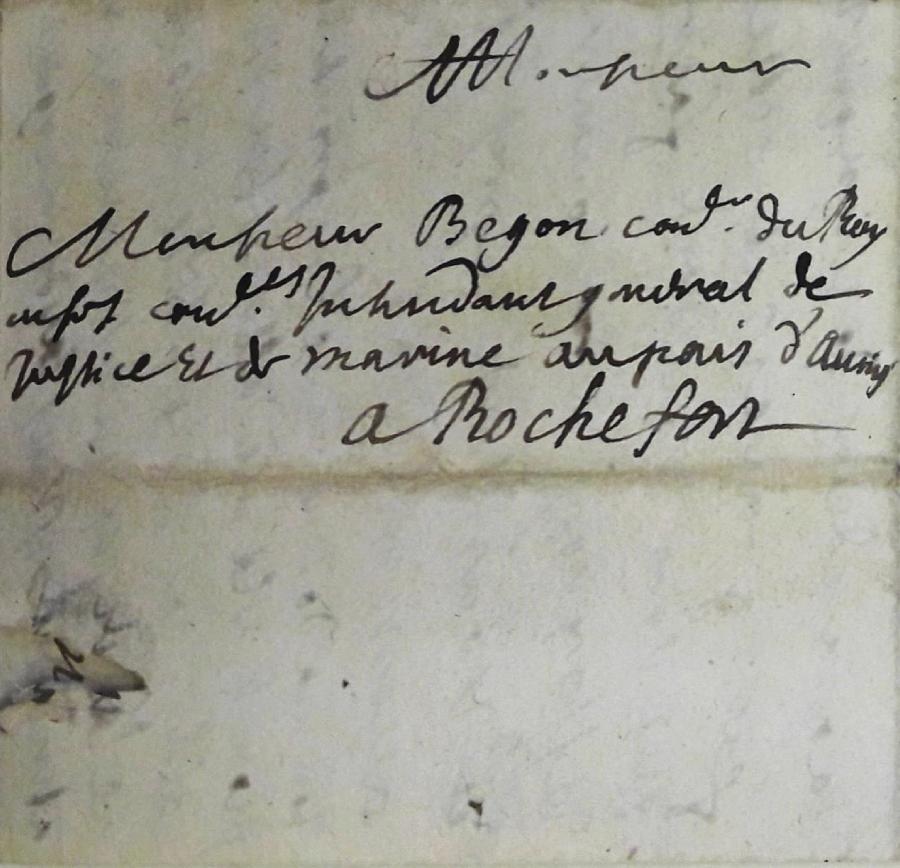 Monsieur
Monsieur Begon con.er du Roy
en ses con.els Intendant general de
Justice Et de marine au pais d'Aunis
a Rochefort